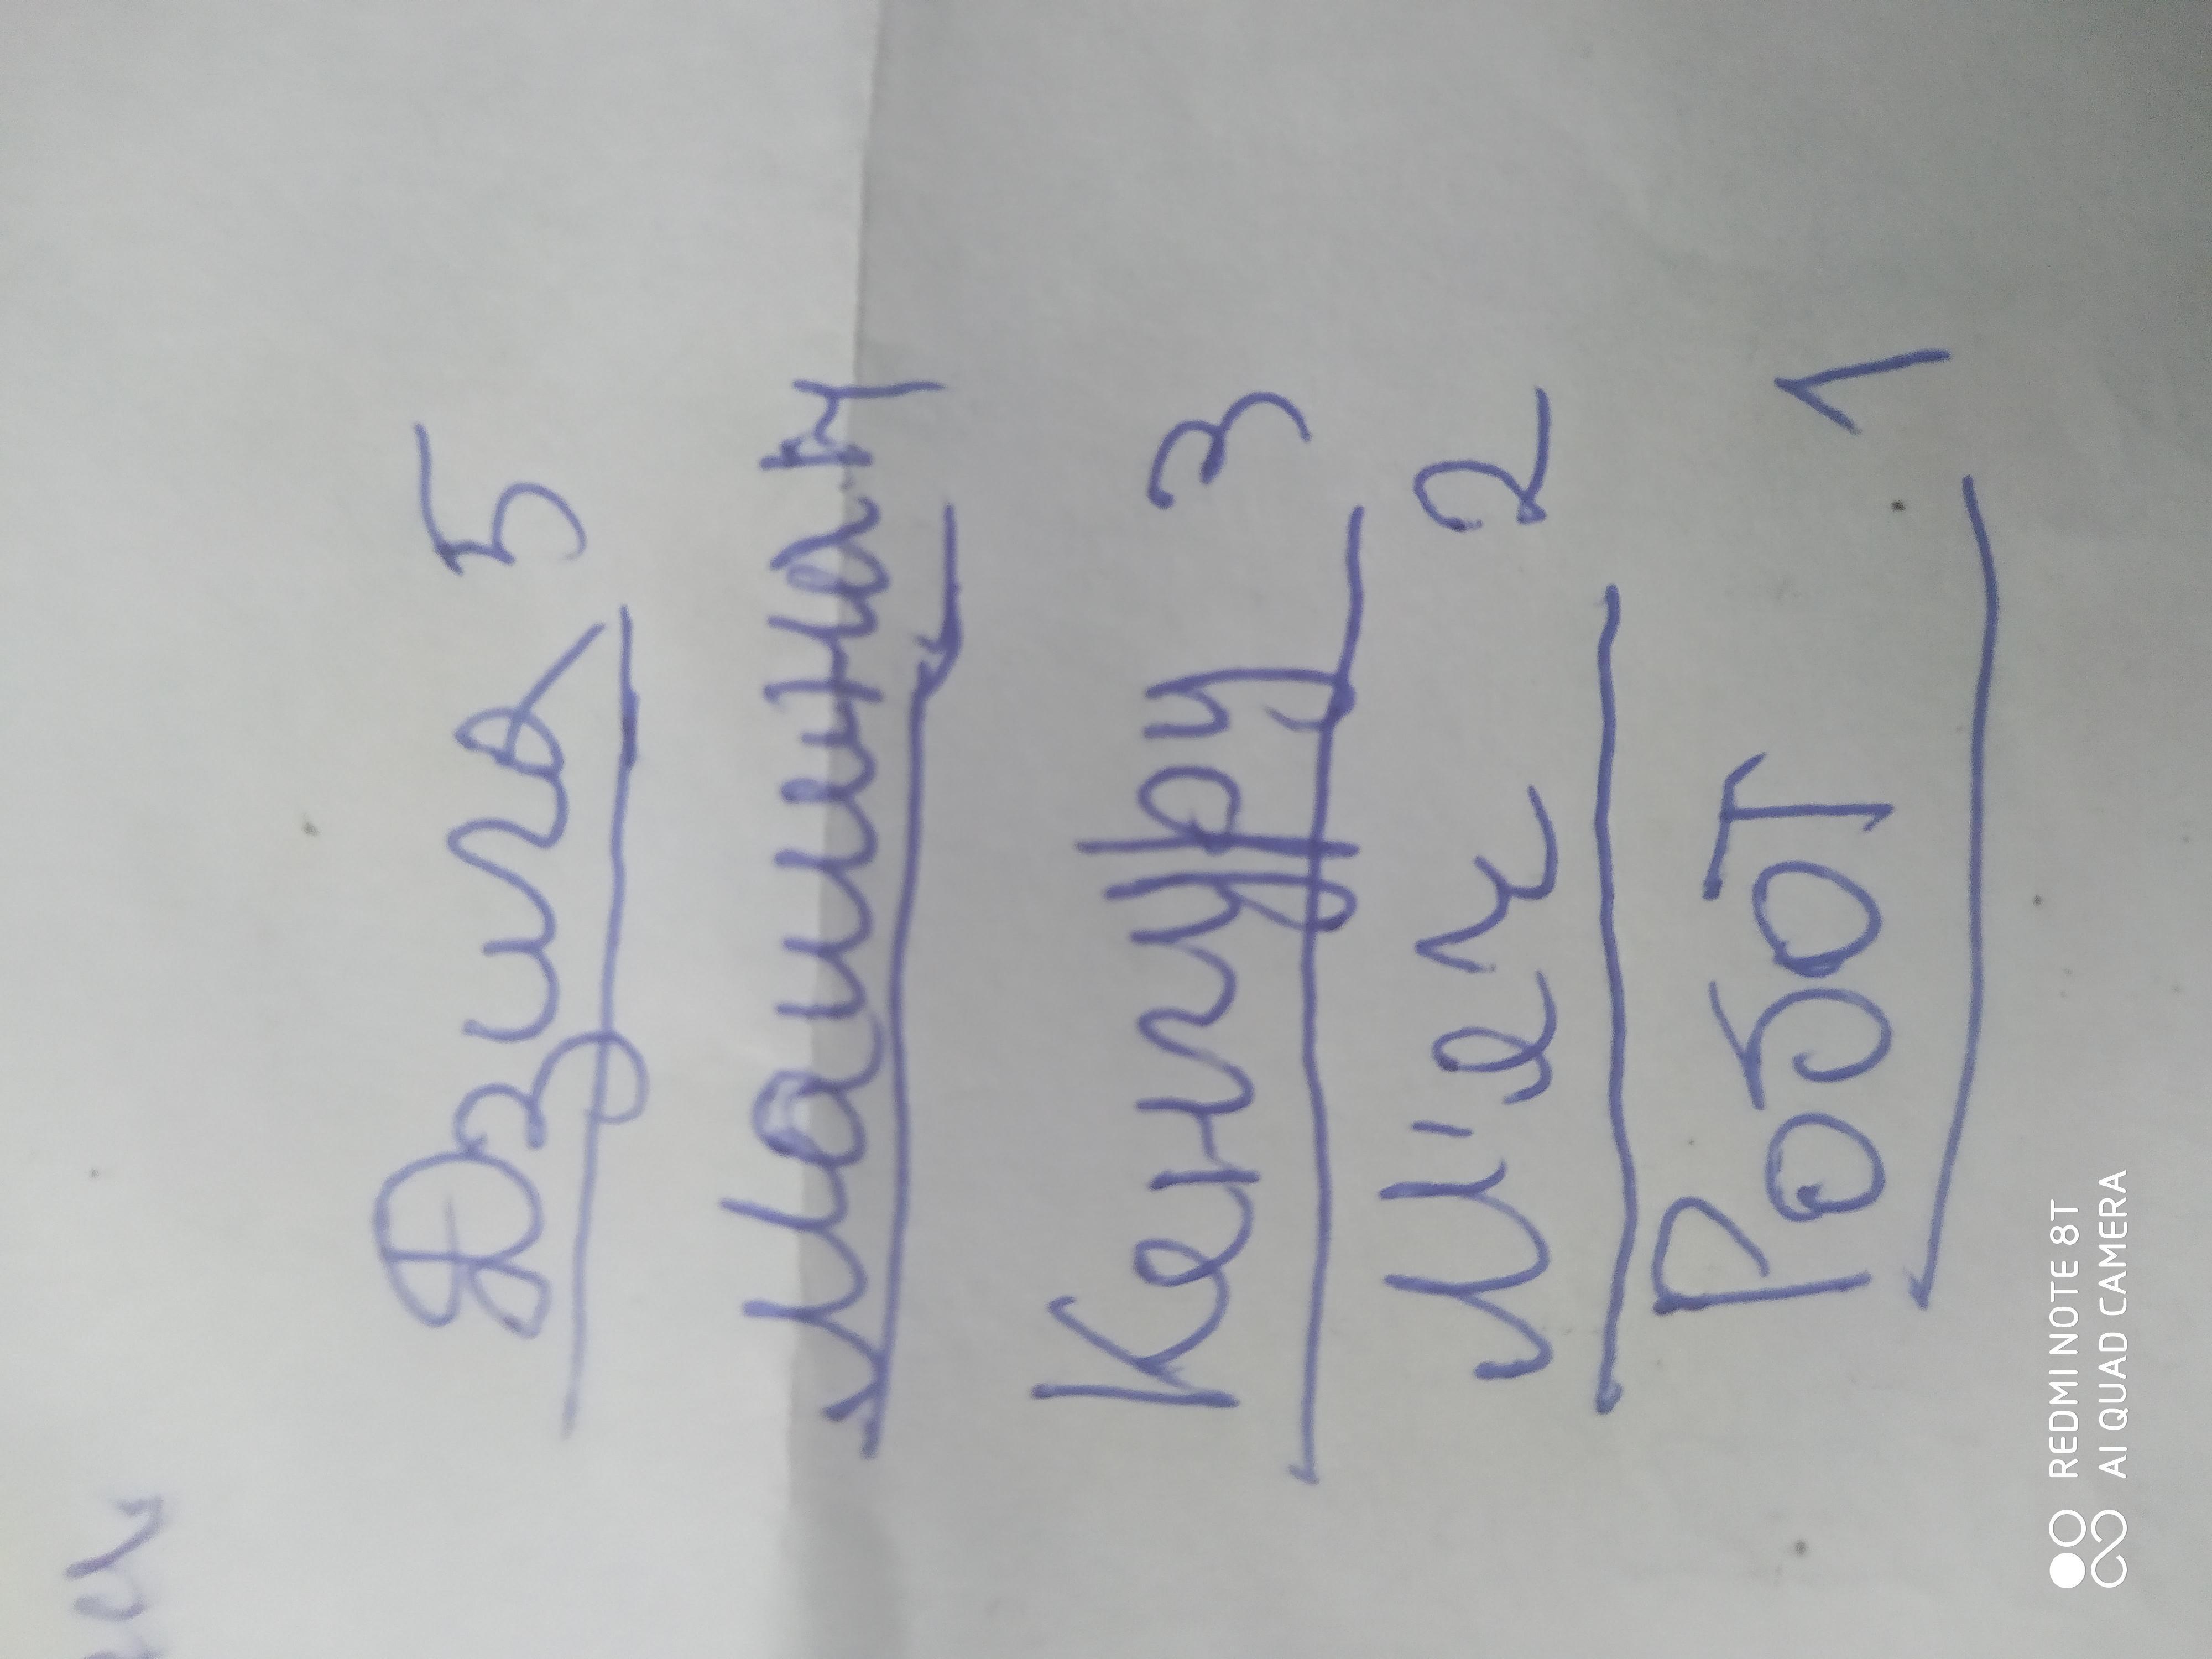 Дзига 5
Машина 4
Кенгуру 3
М'яч 2
Робот 1
REDMI NOTE 8T
AI QUAD CAMERA